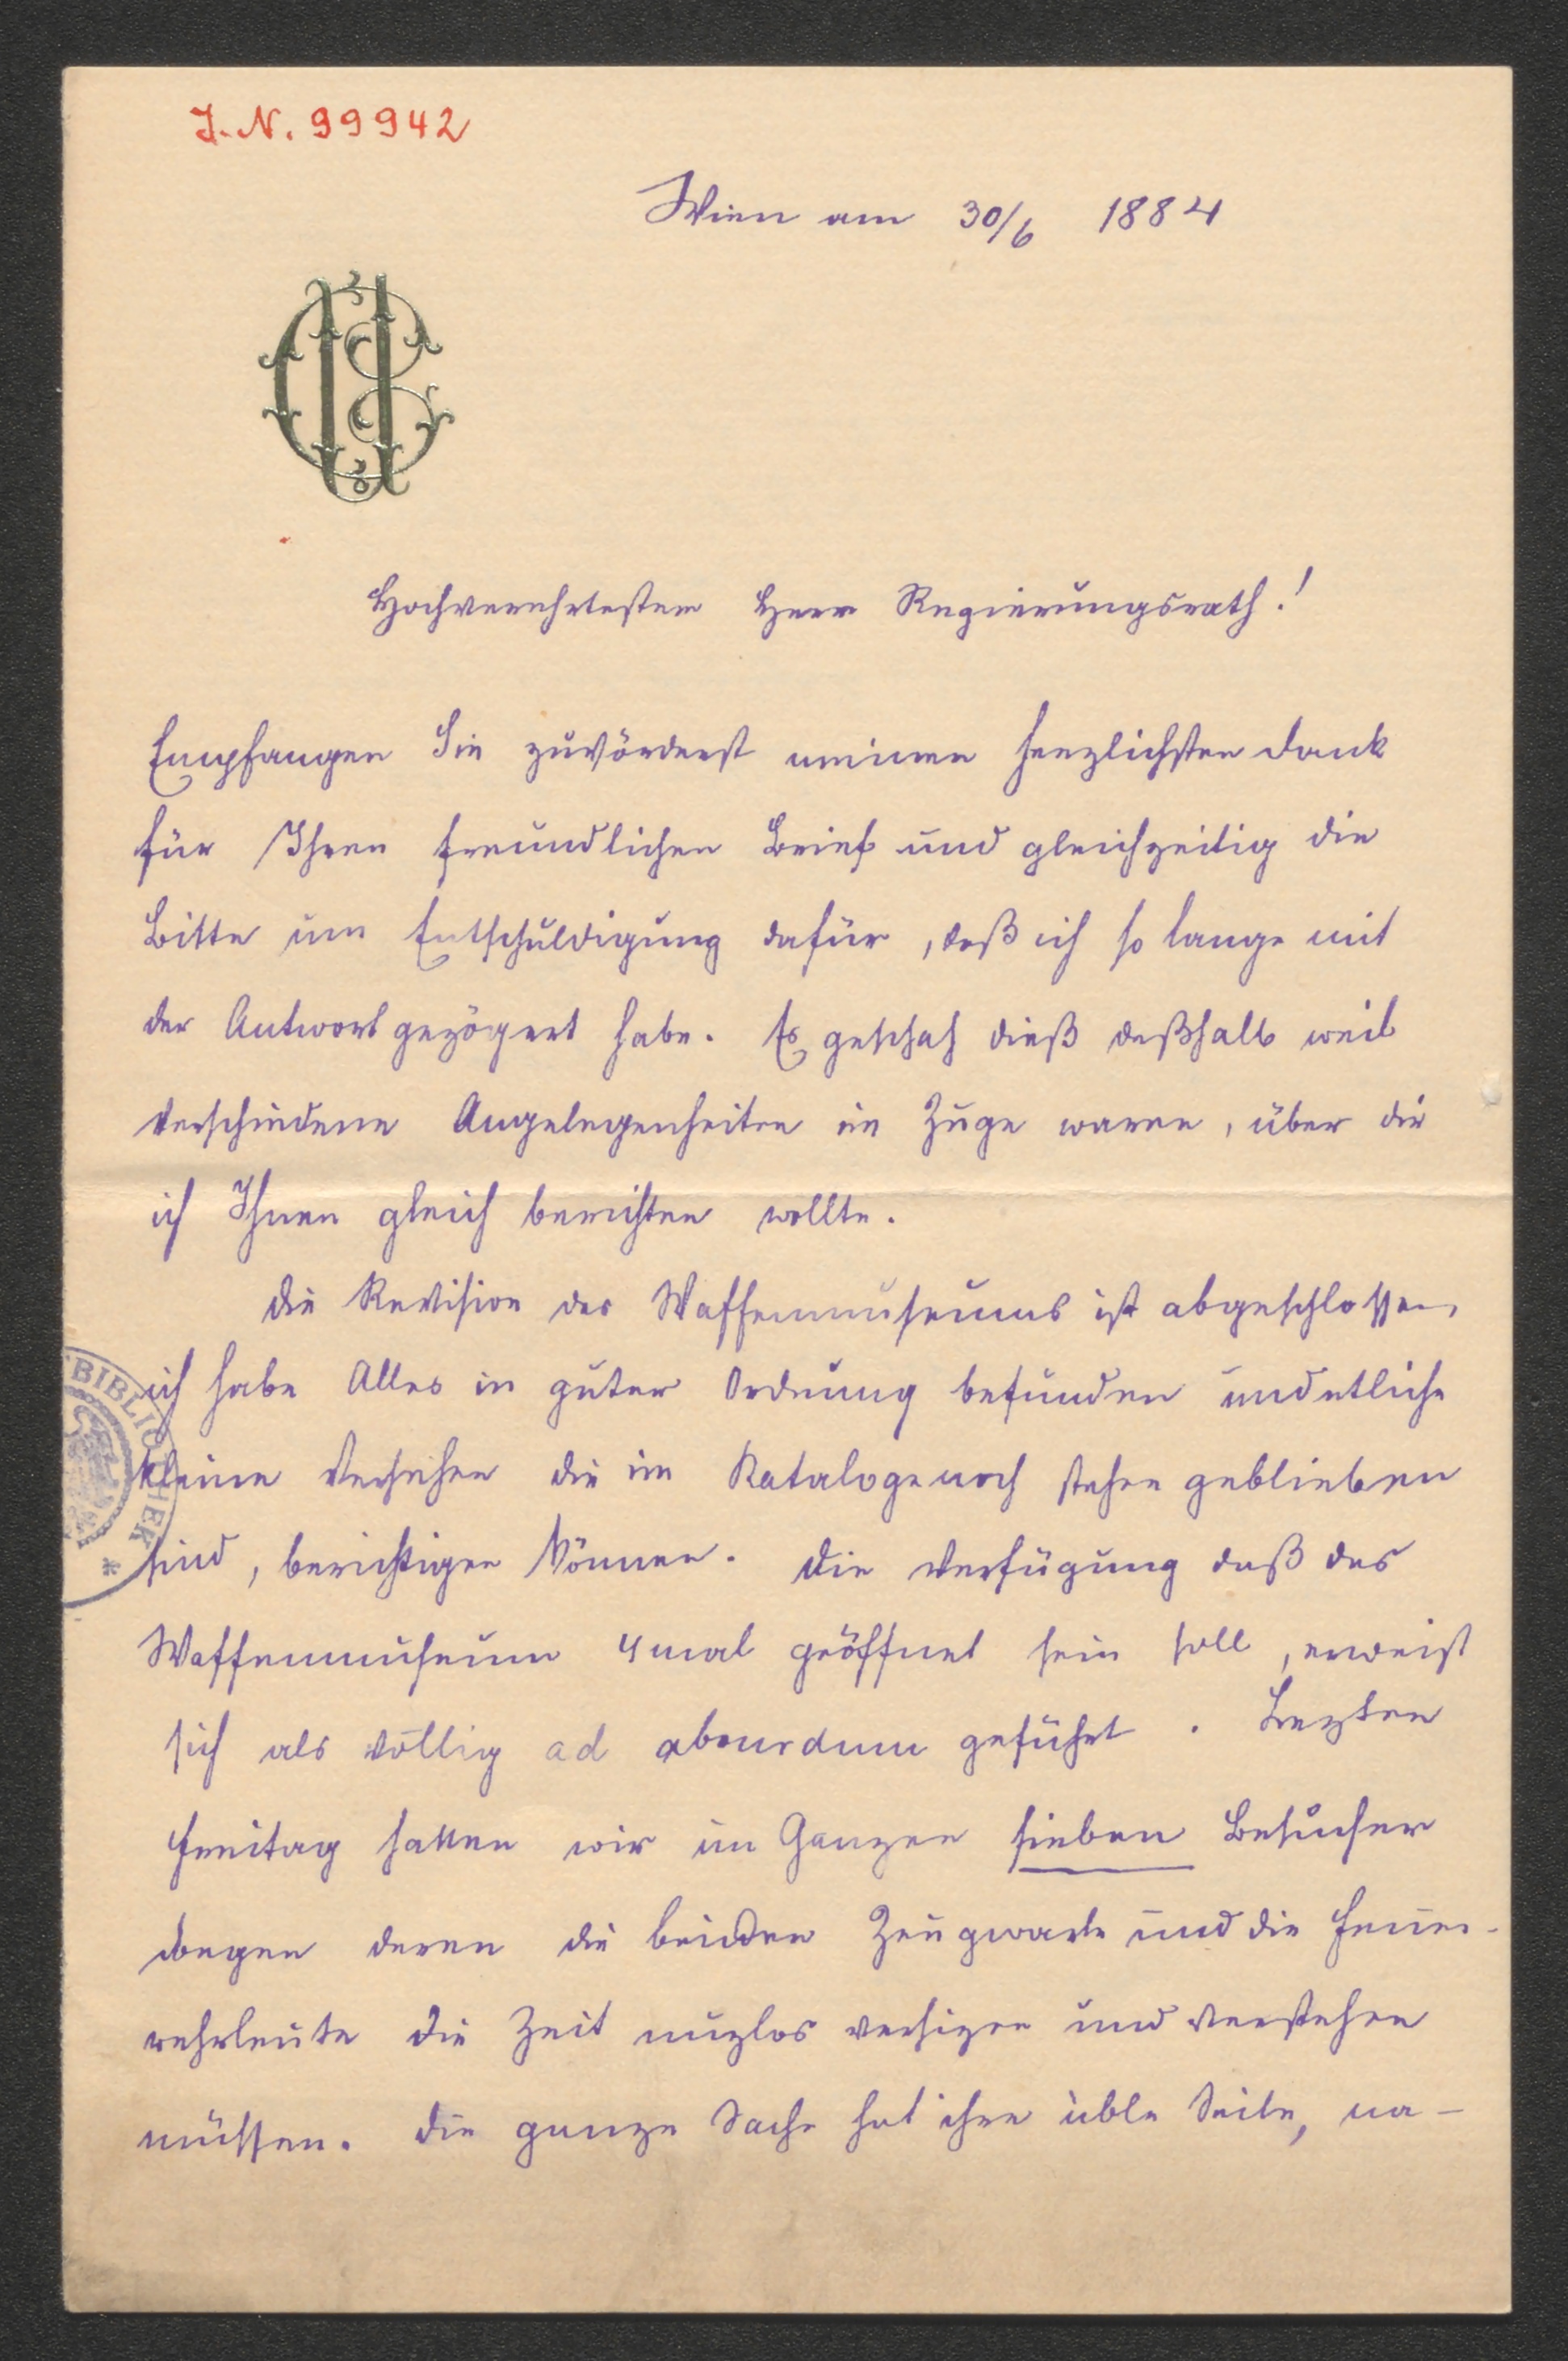 J. N. 99942
Wien am 30/6 1884
Hochverehrtester Herr Regierungsrath!
Empfangen Sie zuvörderst meinen herzlichsten Dank
für Ihren freundlichen Brief und gleichzeitig die
Bitte um Entschuldigung dafür, daß ich so lange mit
der Antwort gezögert habe. Es geschah dieß deßhalb weil
verschiedene Angelegenheiten im Zuge waren, über die
ich Ihnen gleich berichten wollte.
Die Revision des Waffenmuseums ist abgeschlossen,
ich habe Alles in guter Ordnung befunden und etliche
kleine Versehen die im Kataloge noch stehen geblieben
sind, berichtigen können. Die Verfügung daß das
Waffenmuseum 4mal geöffnet sein soll, erweist
sich als völlig ad absurdum geführt. Lezten
Freitag hatten wir im Ganzen sieben Besucher
wegen deren die beiden Zeugwarte und die Feuer-
wehrleute die Zeit nuzlos versizen und verstehen
müssen. Die ganze Sache hat ihre üble Seite, na-
BIBLIOTHEK *